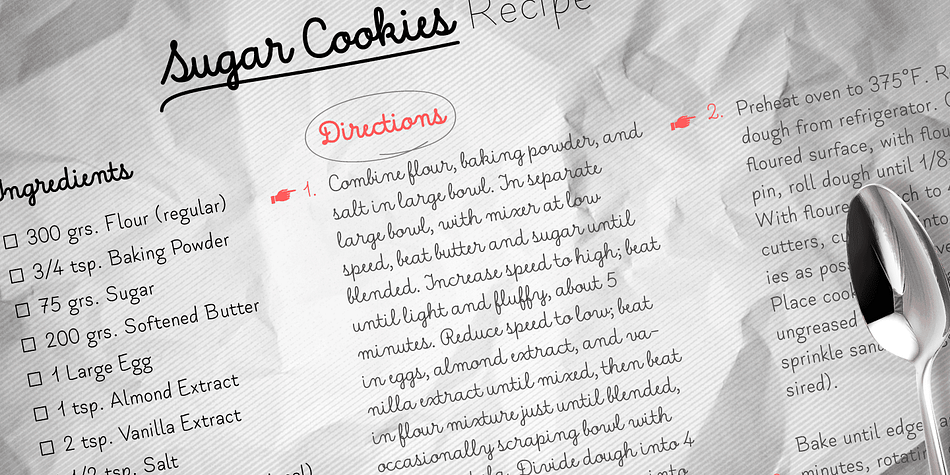 Sugar Cookies Recipe
Ingredients
300 grs. Flour (regular)
3/4 tsp. Baking Powder
75 grs. Sugar
200 grs. Softened Butter
1 Large Egg
1 tsp. Almond Extract
2 tsp. Vanilla Extract
1/2 tsp. Salt
Directions
1. Combine flour, baking powder, and
salt in large bowl. In separate
large bowl, with mixer at low
speed, beat butter and sugar until
blended. Increase speed to high; beat
until light and fluffy, about 5
minutes. Reduce speed to low; beat
in eggs, almond extract, and va-
nilla extract until mixed, then beat
in flour mixture just until blended,
occasionally scraping bowl with
Divide dough into 4
into
2. Preheat oven to 375°F. R
dough from refrigerator.
floured surface, with flou
pin, roll dough until 1/8
With floure
cutters, cu
ies as pos
Place coo
ungreased
sprinkle
sired).
Bake until edge
minutes, rotatin